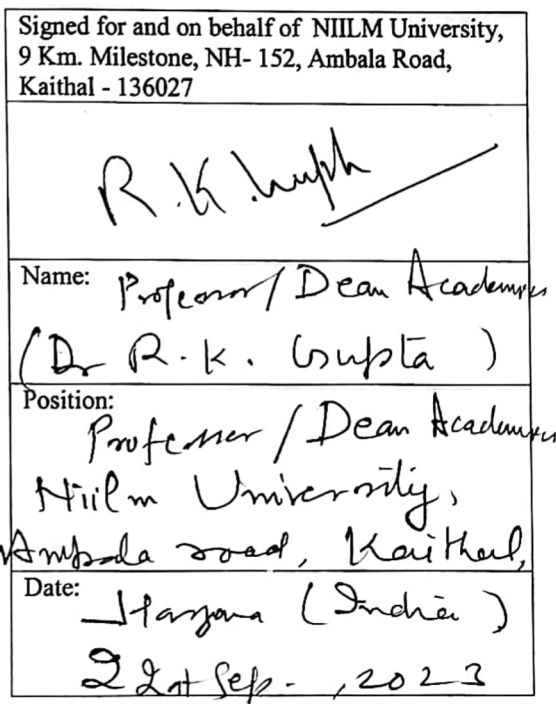 Signed for and on behalf of NIILM University,
9 Km. Milestone, NH- 152, Ambala Road,
Kaithal - 136027
R.K. Gupta
Name: Professor/Dean Academics
(Dr R.K. Gupta)
Position:
Professor/Dean Academics
Niilm University,
Ambala road, Kaithal,
Date: Haryana (India)
Sep. , 2023